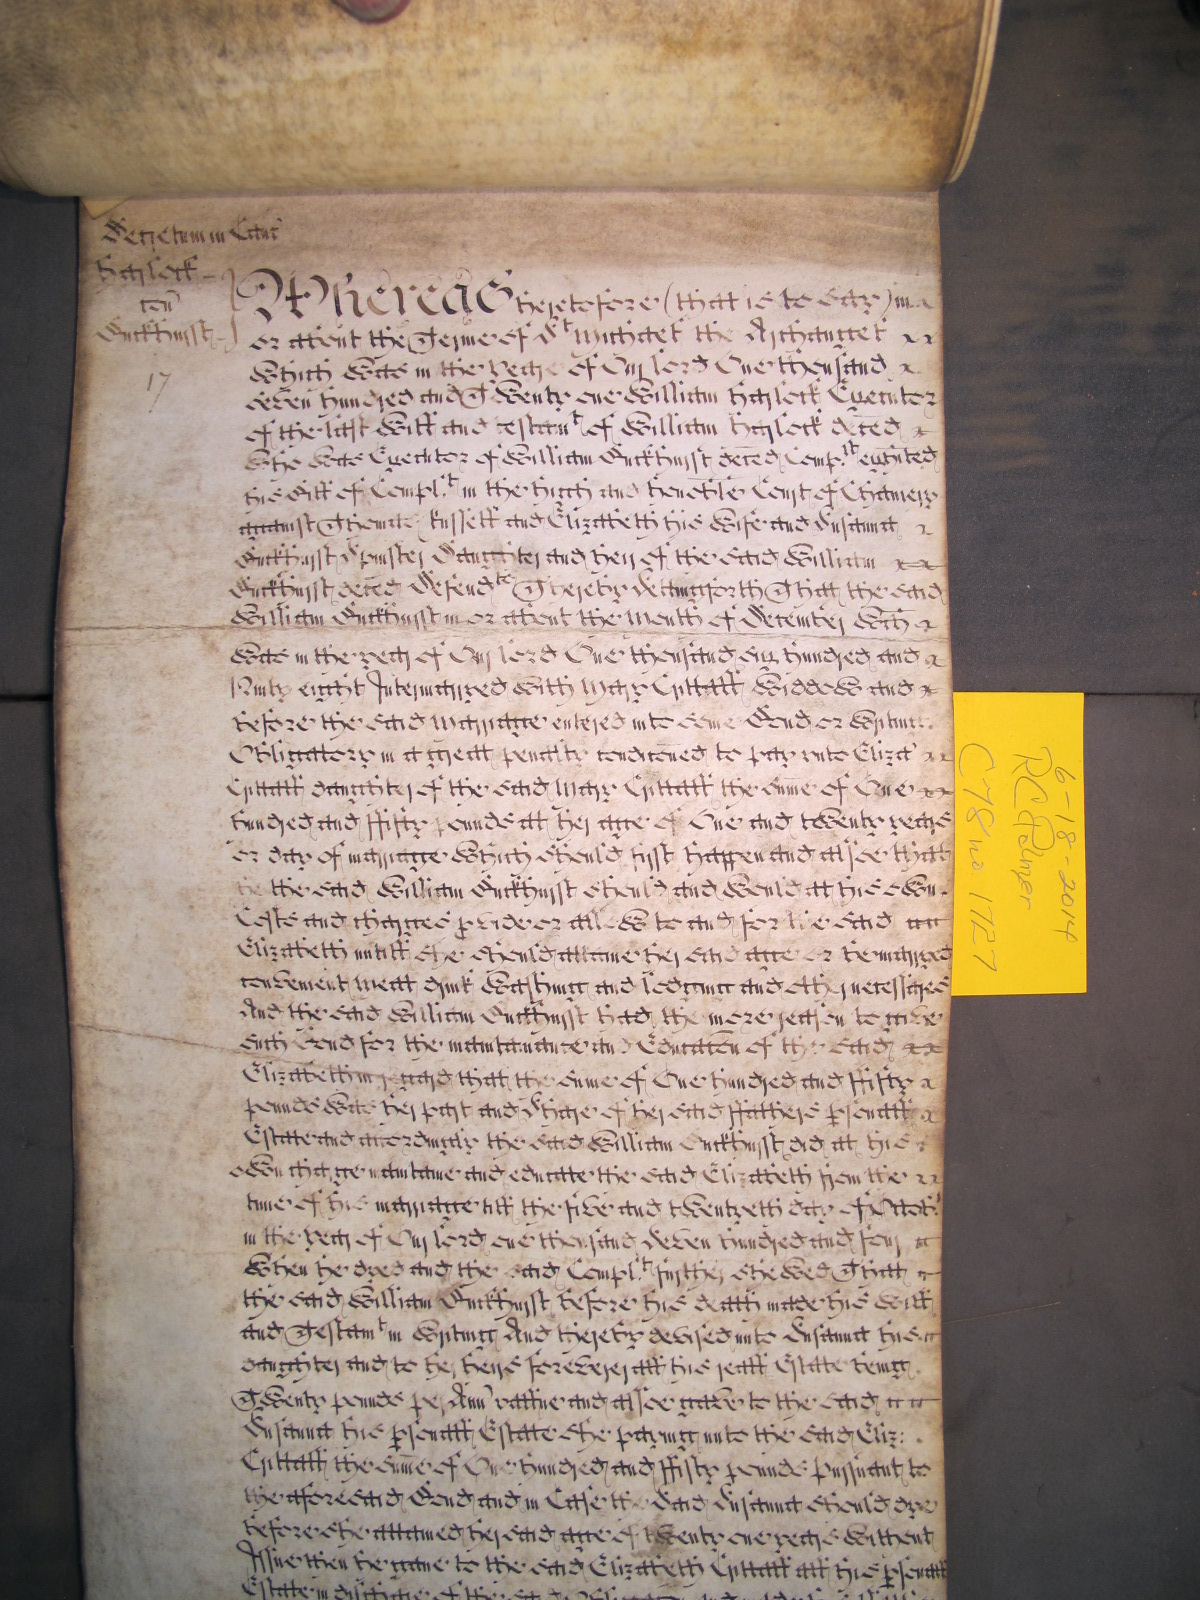 Decretum in Canc
Harlock
con
Buckhurst
17
Whereas heretofore (that is to say) in
or about the Terme of St Michael the Archangel
which was in the yeare of Our lord One thousand
seven hundred and Twenty one William Harlock Executor
of the last Will and testamt of William Harlock deced
who was Executor of William Buckhurst deced Complt exhited
his Bill of Complt in the high and honoble Court of Chancery
against Thomas Russell and Elizabeth his wife and Susanna
Buckhurst Spinster Daughter and heir of the said William
Buckhurst deced Defendts Thereby Setting forth That the said
William Buckhurst in or about the Month of December wch
was in the year of Our lord One thousand six hundred and
Ninty eight Intermarryed with Mary widdow and
before the said Marriage entered into some Bond or writing
Obligatory in a great penalty condiconed to pay unto Eliza
daughter of the said Mary the sume of One
hundred and ffifty pounds at her age of One and twenty years
or day of marriage which should first happen and alsoe that
he the said William Buckhurst should and would at his own
Costs and charges pvide or allow to and for the said
Elizabeth untill she should attaine her said age or be marryed
convenient meat drink washing and lodging and other necessaries
And the said William Buckhurst had the more reason to give
such bond for the maintainance and Educacon of the said
Elizabeth in regard that the sume of One hundred and ffifty
pounds was her part and Share of her said ffathers psonall
Estate and accordingly the said William Buckhurst did at his
own charge maintaine and educate the said Elizabeth from the
time of his marriage till the five and twentyeth day of Octobr
in the year of Our lord one thousand seven hundred and four
when he dyed and the said Complt further shewed That
the said William Buckhurst before his death made his will
and Testamt in writing And thereby devised unto Susanna his
daughter and to her heirs forever all his reall Estate being
Twenty pounds per Ann value and alsoe gave to the said
Susanna his psonall Estate she paying unto the said Eliz:
the sume of One hundred and ffifty pounds pursuant to
the aforesaid Bond and in Case the said Susanna should dye
before she attained her said age of twenty one years without
Issue then he gave to the said Elizabeth all his psonall
Estate in discharge of the said
6-18-2014
RC Palmer
C78 no 1727